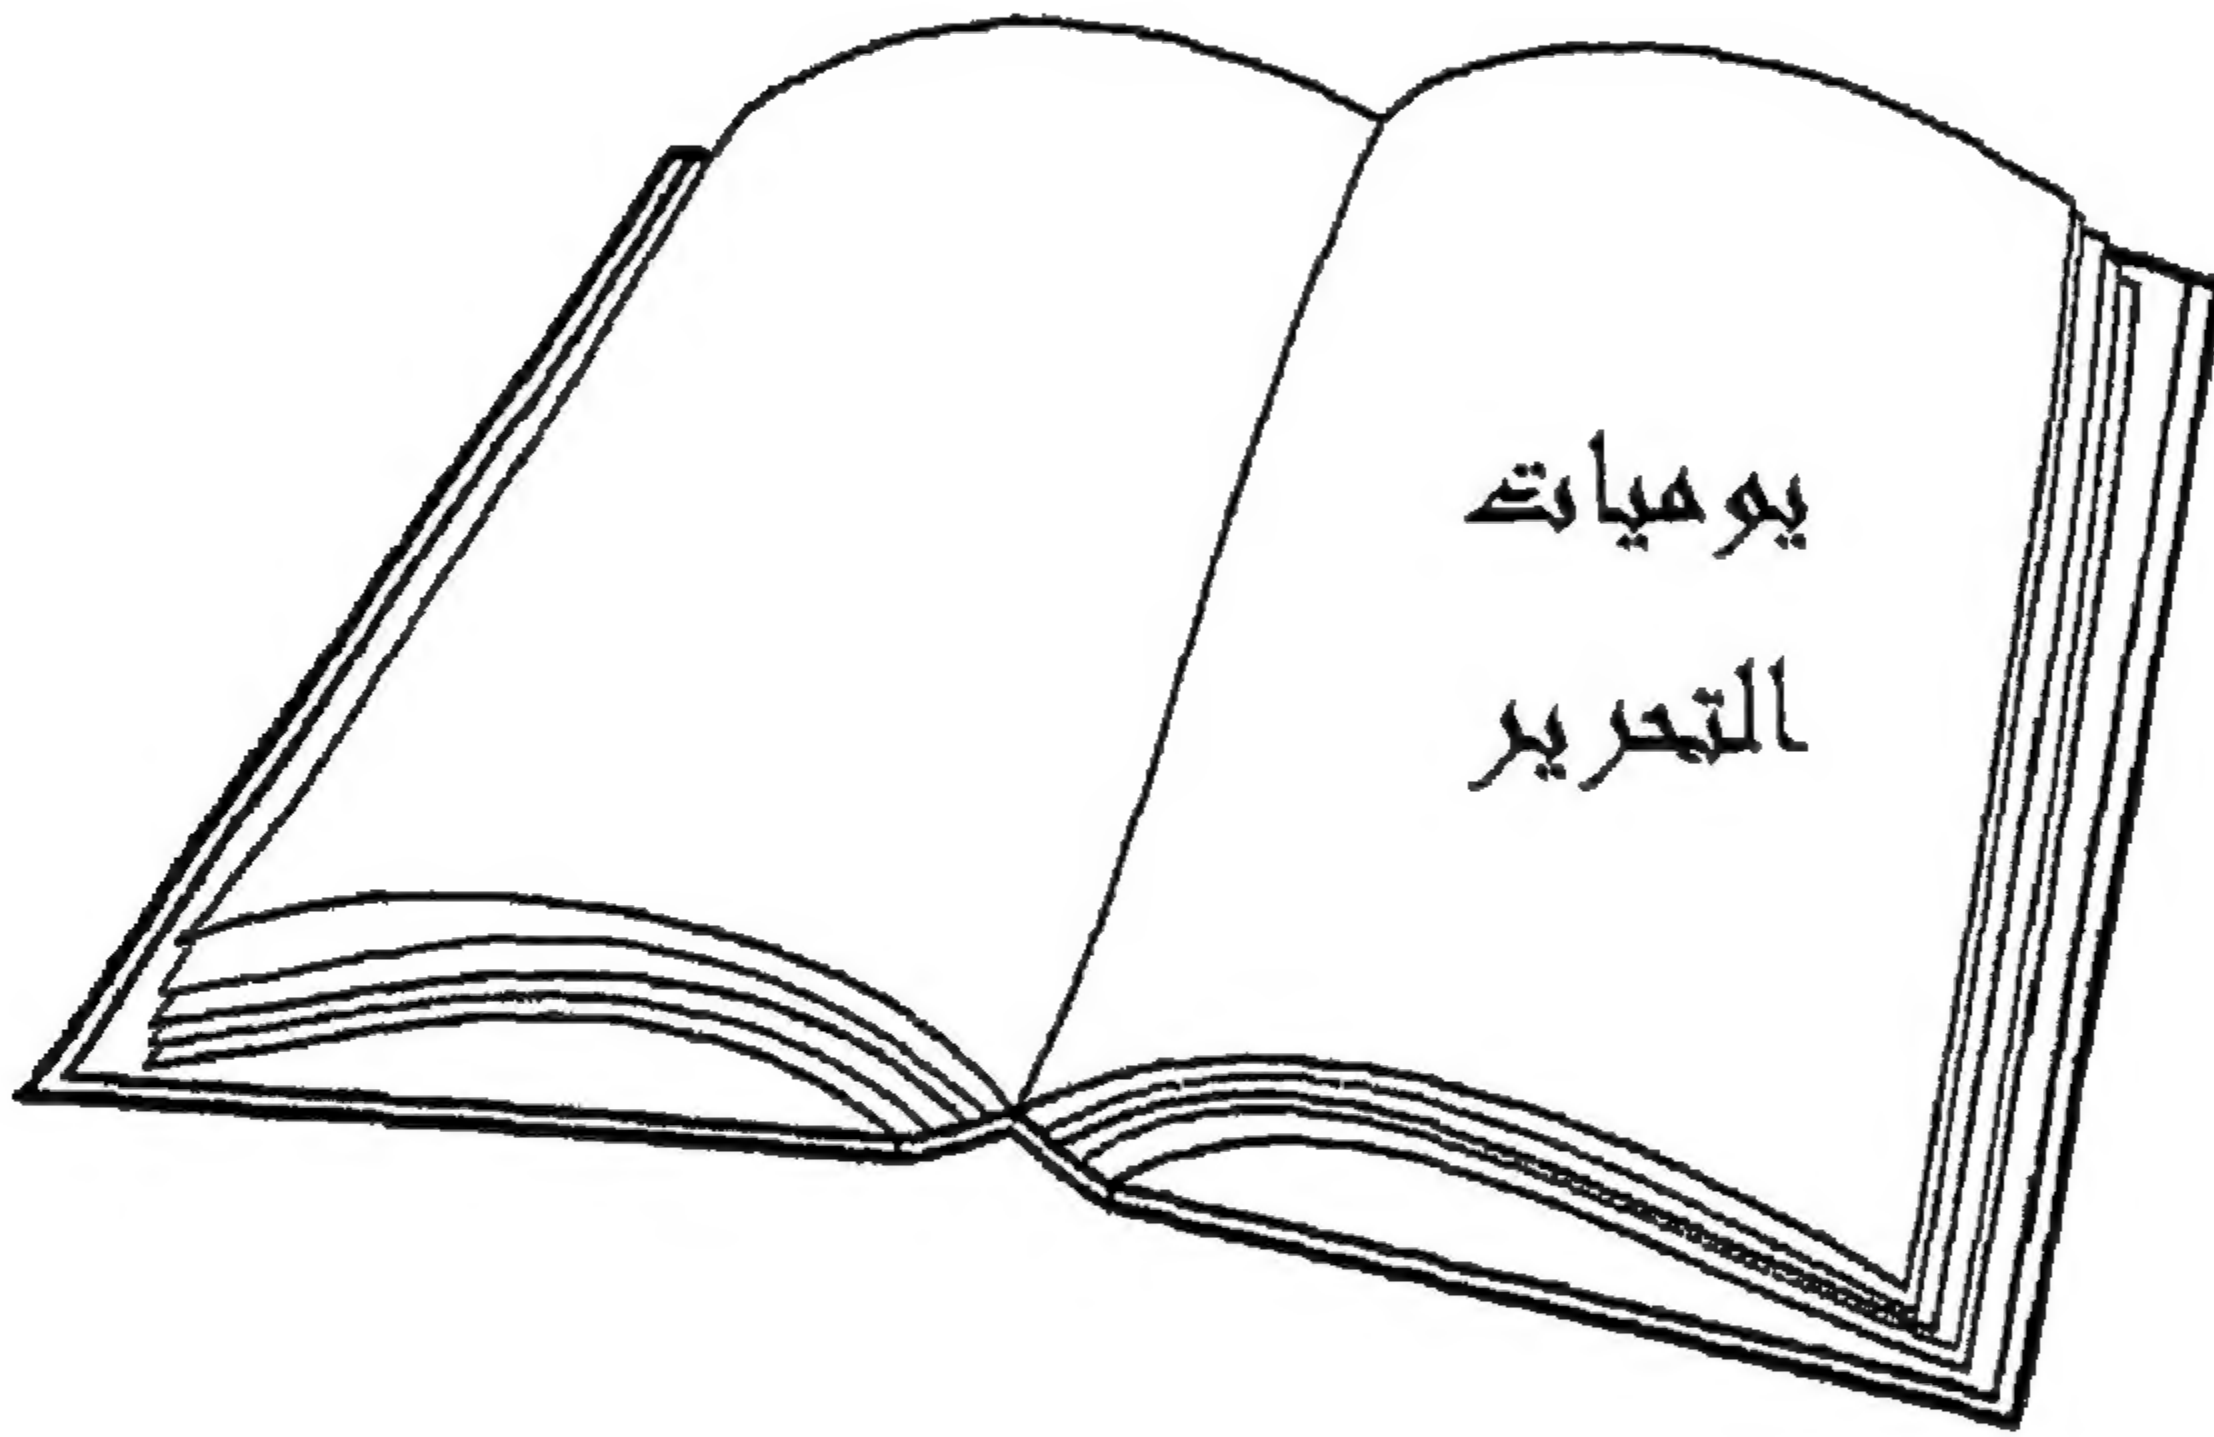 يوميات
التحرير